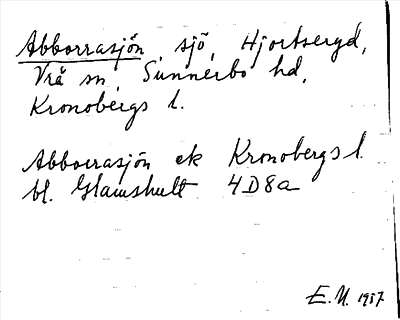 Abborrasjön, sjö, Hjortseryd,
Vrå sn, Sunnerbo hd,
Kronobergs l.
Abborrasjön ek Kronobergs l.
bl. Glamshult 4D8a
E.M. 1957